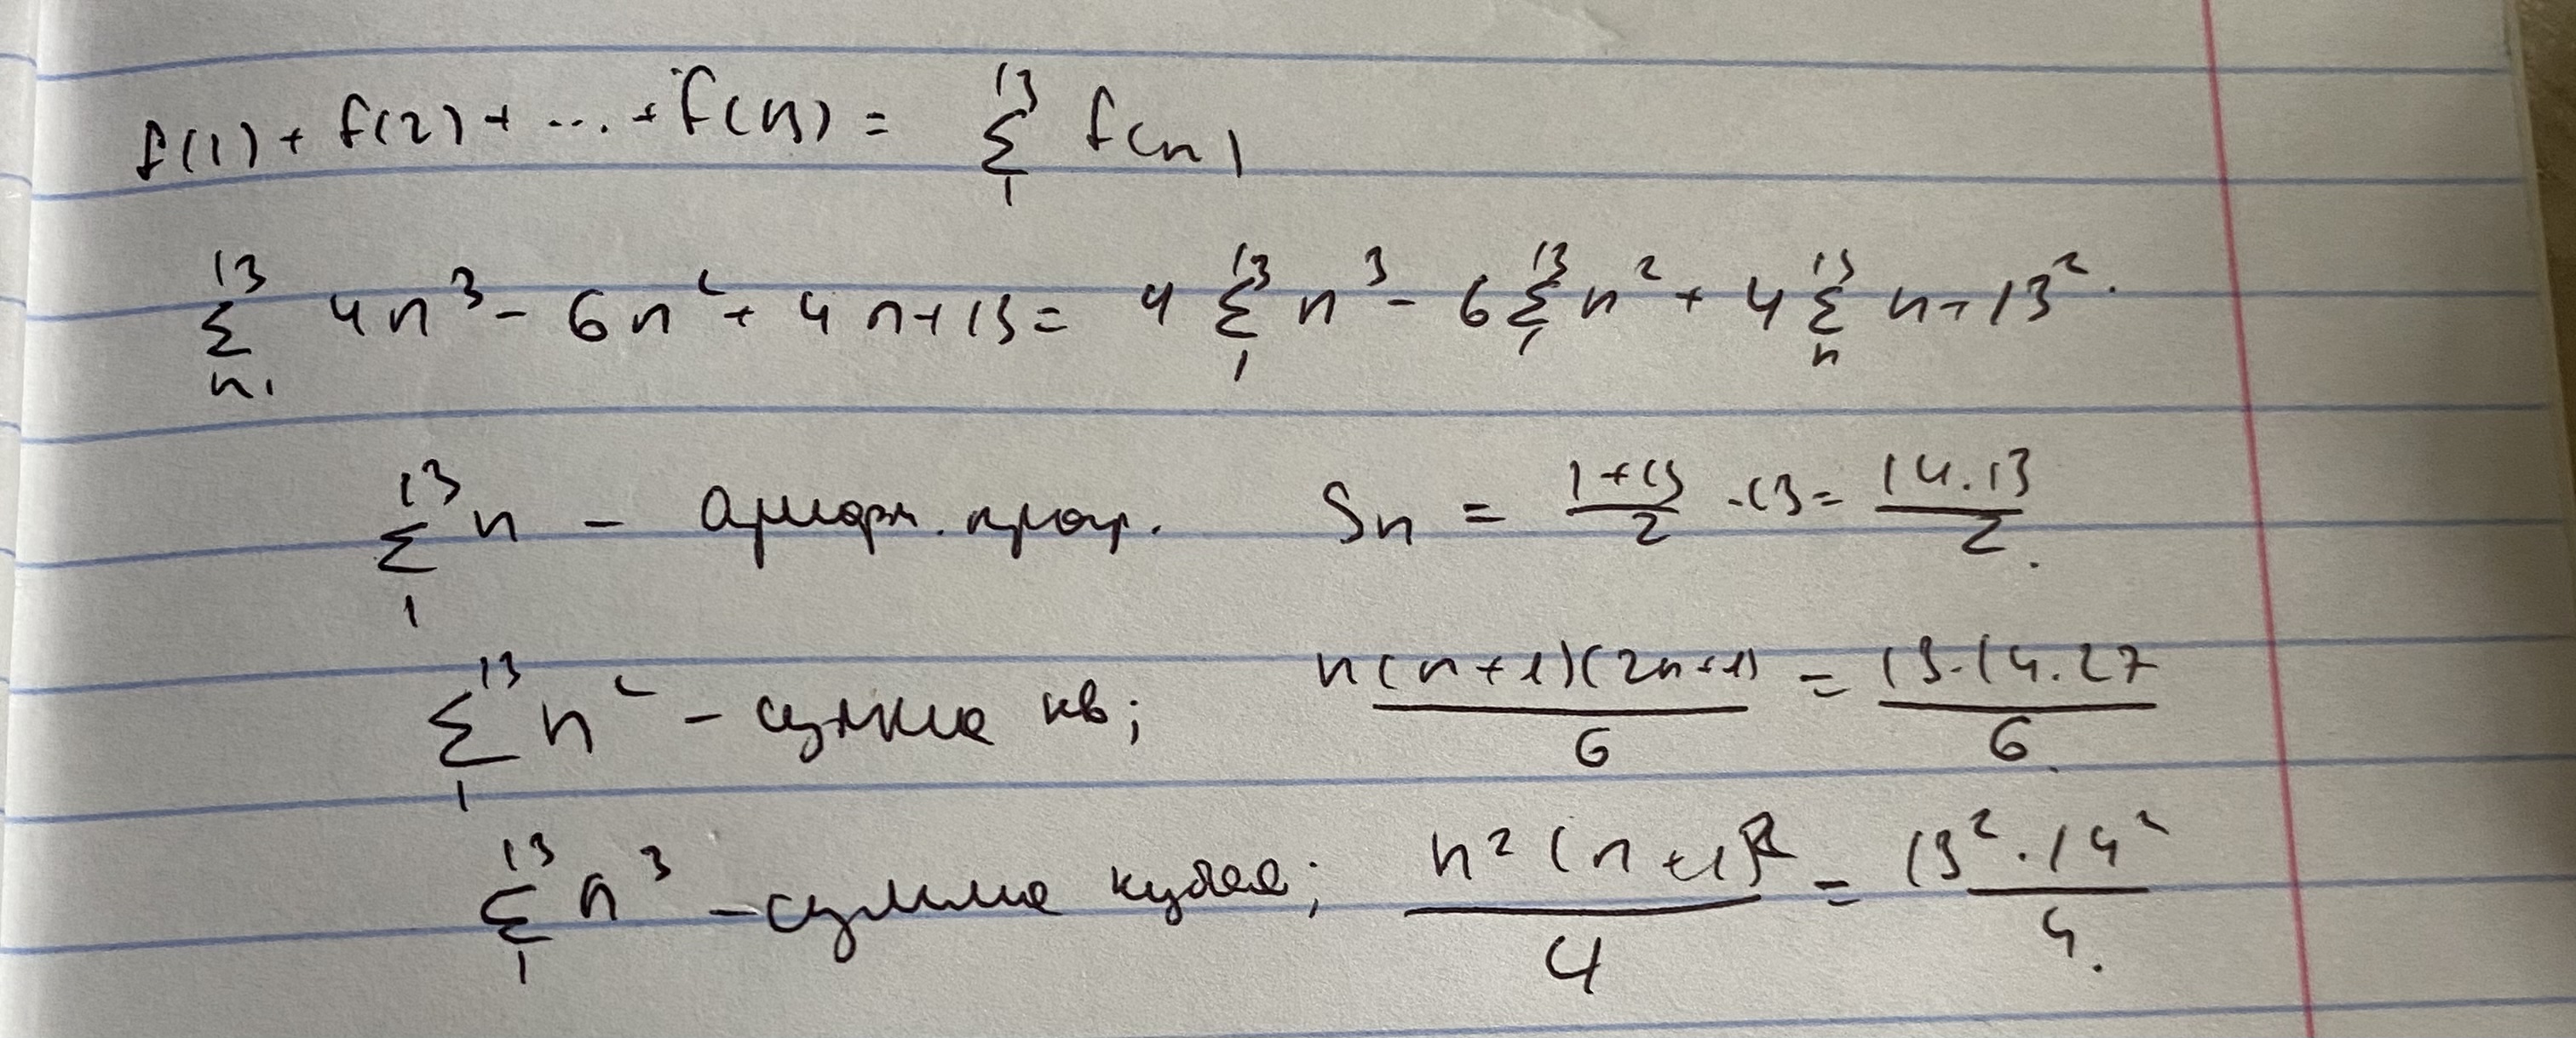 f(1) + f(2) + ... + f(13) = \sum_{1}^{13} f(n)
\sum_{n=1}^{13} 4n³ - 6n² + 4n + 13 = 4 \sum_{1}^{13} n³ - 6 \sum_{1}^{13} n² + 4 \sum_{n}^{13} n + 13².
\sum_{1}^{13} n - арифм. прогр. Sn = \frac{1+13}{2} · 13 = \frac{14·13}{2}.
\sum_{1}^{13} n² - сумма кв; \frac{n(n+1)(2n+1)}{6} = \frac{13·14·27}{6}.
\sum_{1}^{13} n³ - сумма кубов; \frac{n²(n+1)²}{4} = \frac{13²·14²}{4}.